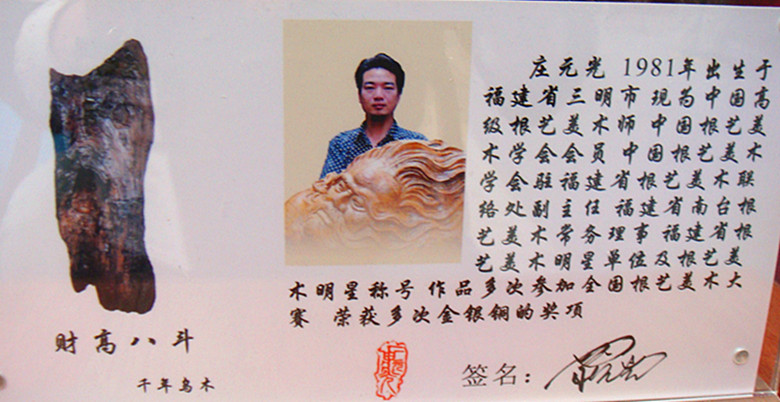 庄元光 1981年出生于
福建省三明市 现为中国高
级根艺美术师 中国根艺美
术学会会员 中国根艺美术
学会驻福建省根艺美术联
络处副主任 福建省南台根
艺美术常务理事 福建省根
艺美术明星单位及根艺美
术明星称号 作品多次参加全国根艺美术大
赛 荣获多次金银铜的奖项
财高八斗
千年乌木
签名：